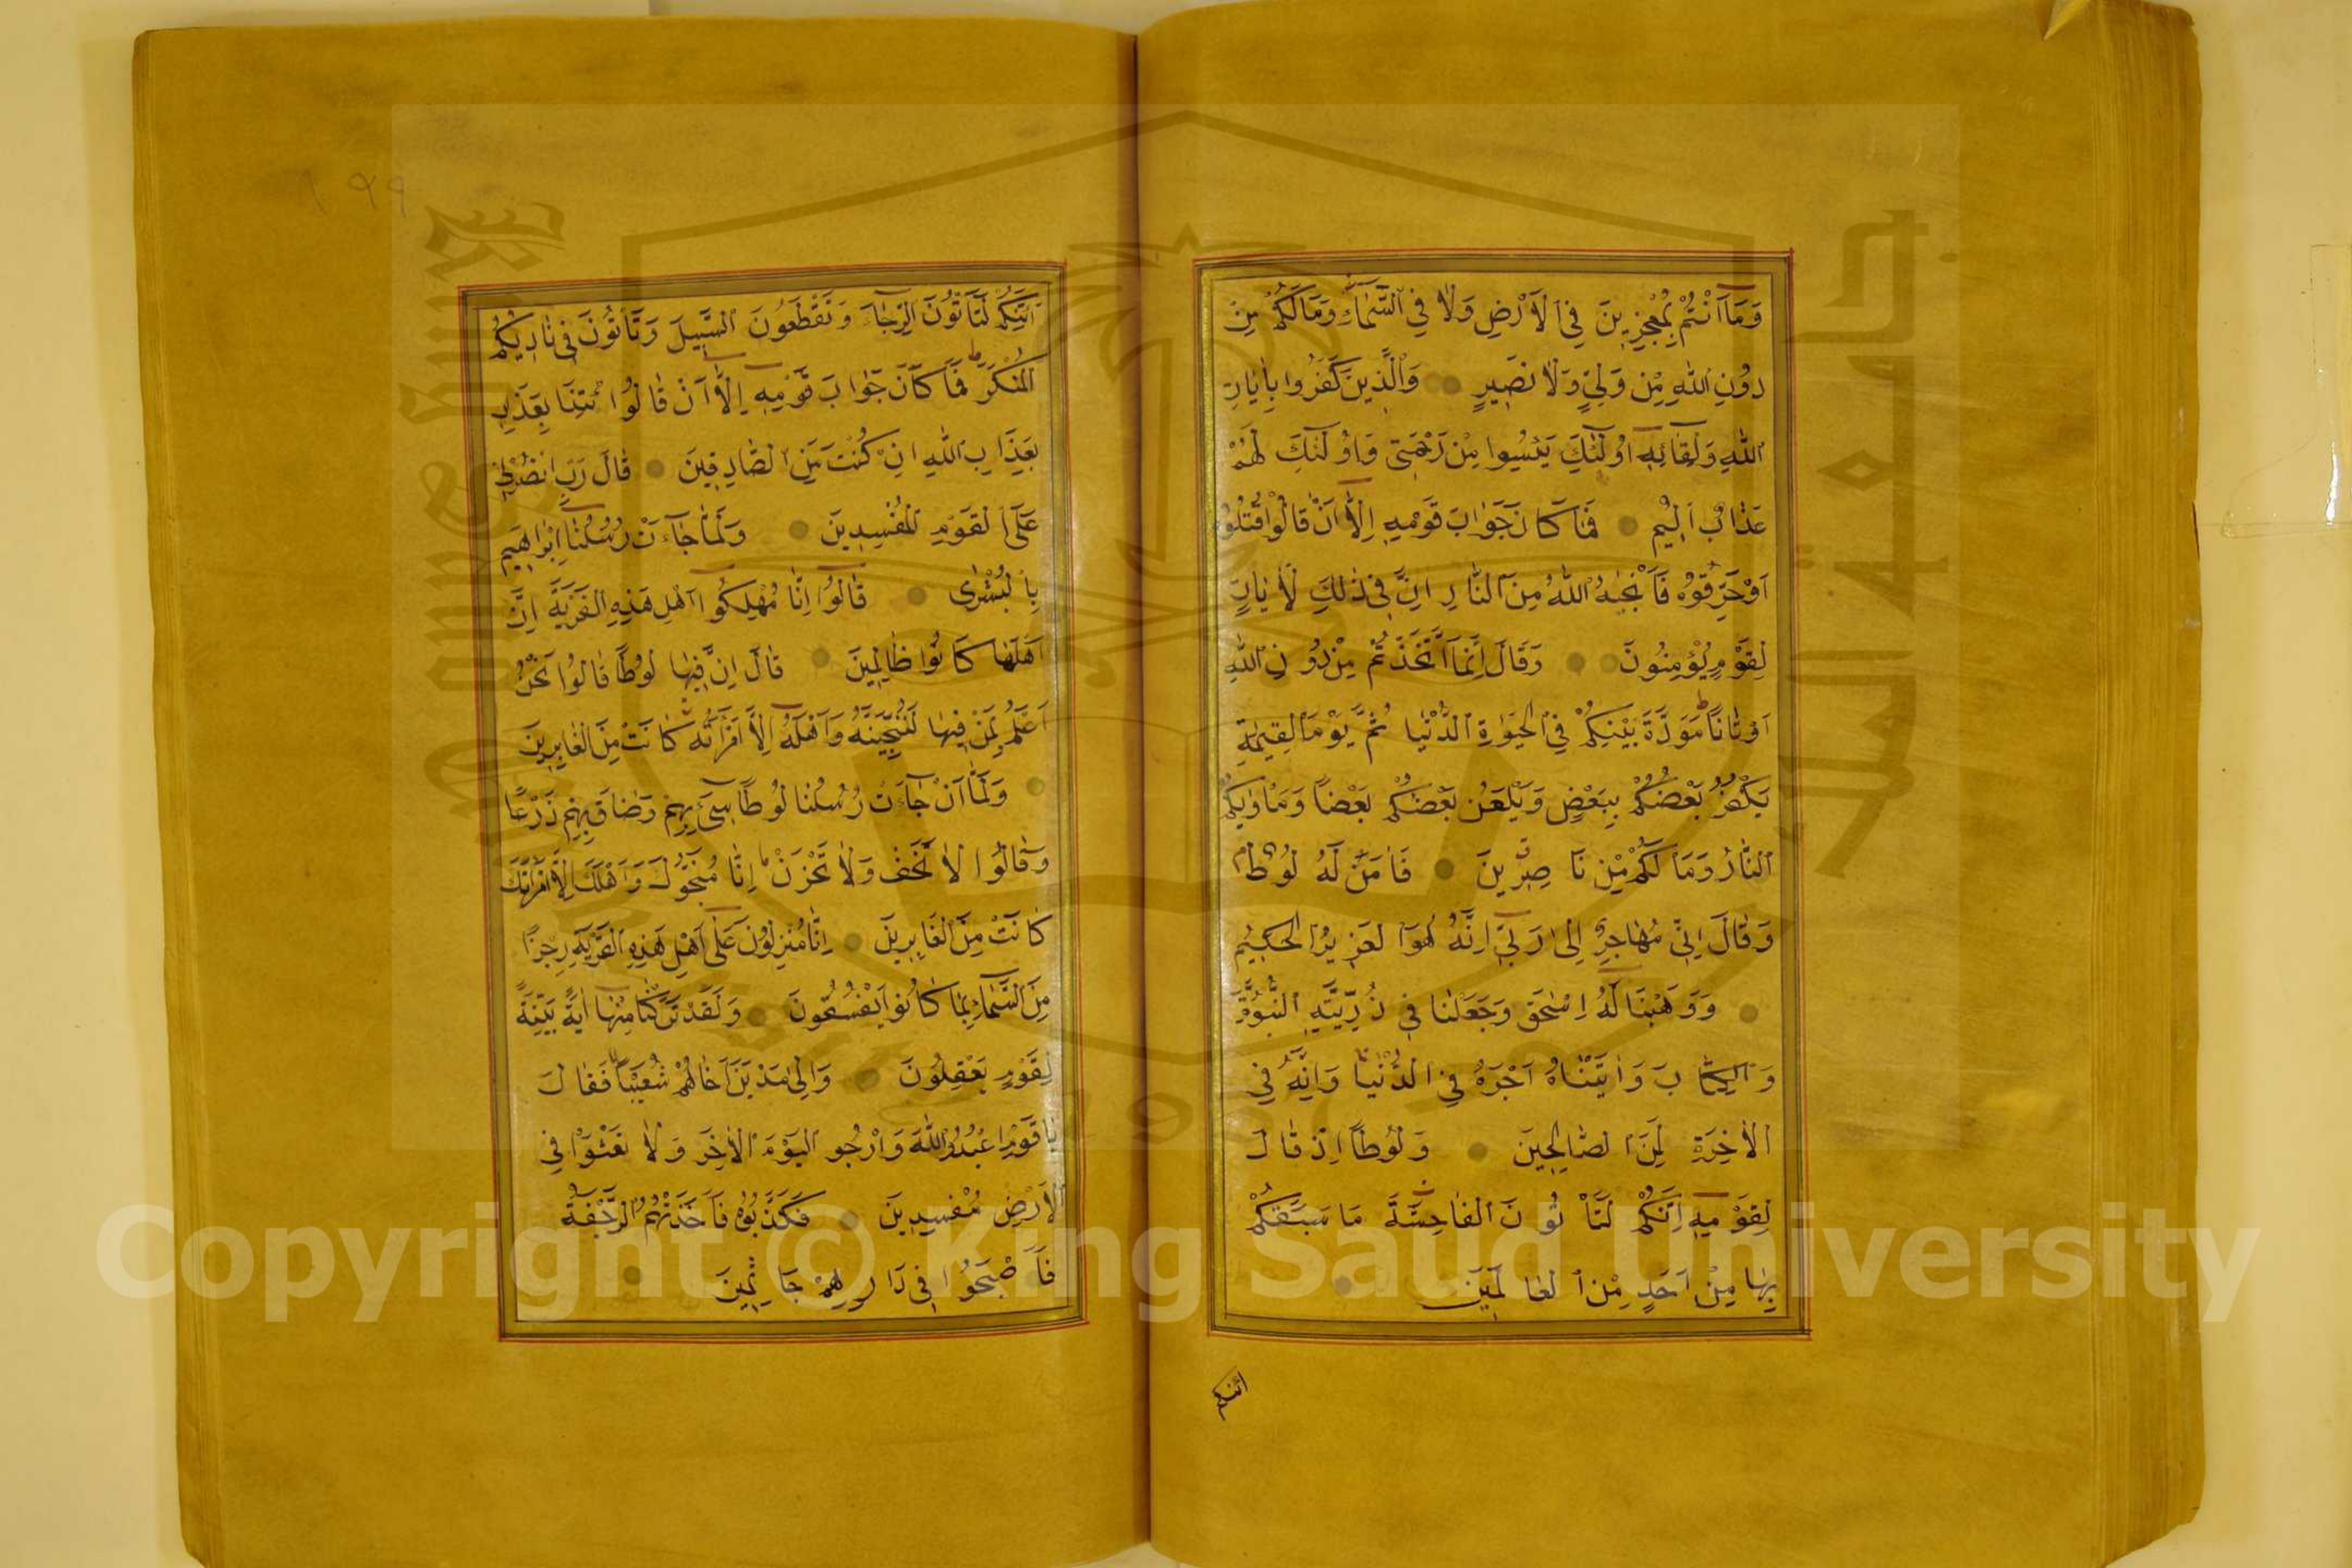 وَمَآ اَنْتُمْ بِمُعْجِزِينَ فِي الْاَرْضِ وَلَا فِي السَّمَآءِ وَمَا لَكُمْ مِنْ
دُونِ اللهِ مِنْ وَلِيٍّ وَلَا نَصِيرٍ وَالَّذِينَ كَفَرُوا بِاٰيَاتِ
اللهِ وَلِقَائِهِٓ اُولٰٓئِكَ يَئِسُوا مِنْ رَحْمَتِي وَاُولٰٓئِكَ لَهُمْ
عَذَابٌ اَلِيمٌ فَمَا كَانَ جَوَابَ قَوْمِهِٓ اِلَّآ اَنْ قَالُوا اقْتُلُوهُ
اَوْ حَرِّقُوهُ فَاَنْجٰيهُ اللهُ مِنَ النَّارِ اِنَّ فِي ذٰلِكَ لَاٰيَاتٍ
لِقَوْمٍ يُؤْمِنُونَ وَقَالَ اِنَّمَا اتَّخَذْتُمْ مِنْ دُونِ اللهِ
اَوْثَانًا مَوَدَّةَ بَيْنِكُمْ فِي الْحَيٰوةِ الدُّنْيَا ثُمَّ يَوْمَ الْقِيٰمَةِ
يَكْفُرُ بَعْضُكُمْ بِبَعْضٍ وَيَلْعَنُ بَعْضُكُمْ بَعْضًا وَمَأْوٰيكُمُ
النَّارُ وَمَا لَكُمْ مِنْ نَاصِرِينَ فَاٰمَنَ لَهُ لُوطٌ
وَقَالَ اِنِّي مُهَاجِرٌ اِلٰى رَبِّي اِنَّهُ هُوَ الْعَزِيزُ الْحَكِيمُ
وَوَهَبْنَا لَهُٓ اِسْحٰقَ وَجَعَلْنَا فِي ذُرِّيَّتِهِ النُّبُوَّةَ
وَالْكِتَابَ وَاٰتَيْنَاهُ اَجْرَهُ فِي الدُّنْيَا وَاِنَّهُ فِي
الْاٰخِرَةِ لَمِنَ الصَّالِحِينَ وَلُوطًا اِذْ قَالَ
لِقَوْمِهِٓ اِنَّكُمْ لَتَأْتُونَ الْفَاحِشَةَ مَا سَبَقَكُمْ
بِهَا مِنْ اَحَدٍ مِنَ الْعَالَمِينَ
أئنكم
١٩٩
اَئِنَّكُمْ لَتَأْتُونَ الرِّجَالَ وَتَقْطَعُونَ السَّبِيلَ وَتَأْتُونَ فِي نَادِيكُمُ
الْمُنْكَرَ فَمَا كَانَ جَوَابَ قَوْمِهِٓ اِلَّآ اَنْ قَالُوا ائْتِنَا بِعَذَابِ
بِعَذَابِ اللهِ اِنْ كُنْتَ مِنَ الصَّادِقِينَ قَالَ رَبِّ انْصُرْنِي
عَلَى الْقَوْمِ الْمُفْسِدِينَ وَلَمَّا جَآءَتْ رُسُلُنَآ اِبْرَاهِيمَ
بِالْبُشْرٰى قَالُوٓا اِنَّا مُهْلِكُوٓا اَهْلِ هٰذِهِ الْقَرْيَةِ اِنَّ
اَهْلَهَا كَانُوا ظَالِمِينَ قَالَ اِنَّ فِيهَا لُوطًا قَالُوا نَحْنُ
اَعْلَمُ بِمَنْ فِيهَا لَنُنَجِّيَنَّهُ وَاَهْلَهُٓ اِلَّا امْرَاَتَهُ كَانَتْ مِنَ الْغَابِرِينَ
وَلَمَّآ اَنْ جَآءَتْ رُسُلُنَا لُوطًا سِٓيءَ بِهِمْ وَضَاقَ بِهِمْ ذَرْعًا
وَقَالُوا لَا تَخَفْ وَلَا تَحْزَنْ اِنَّا مُنَجُّوكَ وَاَهْلَكَ اِلَّا امْرَاَتَكَ
كَانَتْ مِنَ الْغَابِرِينَ اِنَّا مُنْزِلُونَ عَلٰٓى اَهْلِ هٰذِهِ الْقَرْيَةِ رِجْزًا
مِنَ السَّمَآءِ بِمَا كَانُوا يَفْسُقُونَ وَلَقَدْ تَرَكْنَا مِنْهَآ اٰيَةً بَيِّنَةً
لِقَوْمٍ يَعْقِلُونَ وَاِلٰى مَدْيَنَ اَخَاهُمْ شُعَيْبًا فَقَالَ
يَا قَوْمِ اعْبُدُوا اللهَ وَارْجُو الْيَوْمَ الْاٰخِرَ وَلَا تَعْثَوْا فِي
الْاَرْضِ مُفْسِدِينَ فَكَذَّبُوهُ فَاَخَذَتْهُمُ الرَّجْفَةُ
فَاَصْبَحُوا فِي دَارِهِمْ جَاثِمِينَ
Copyright © King Saud University